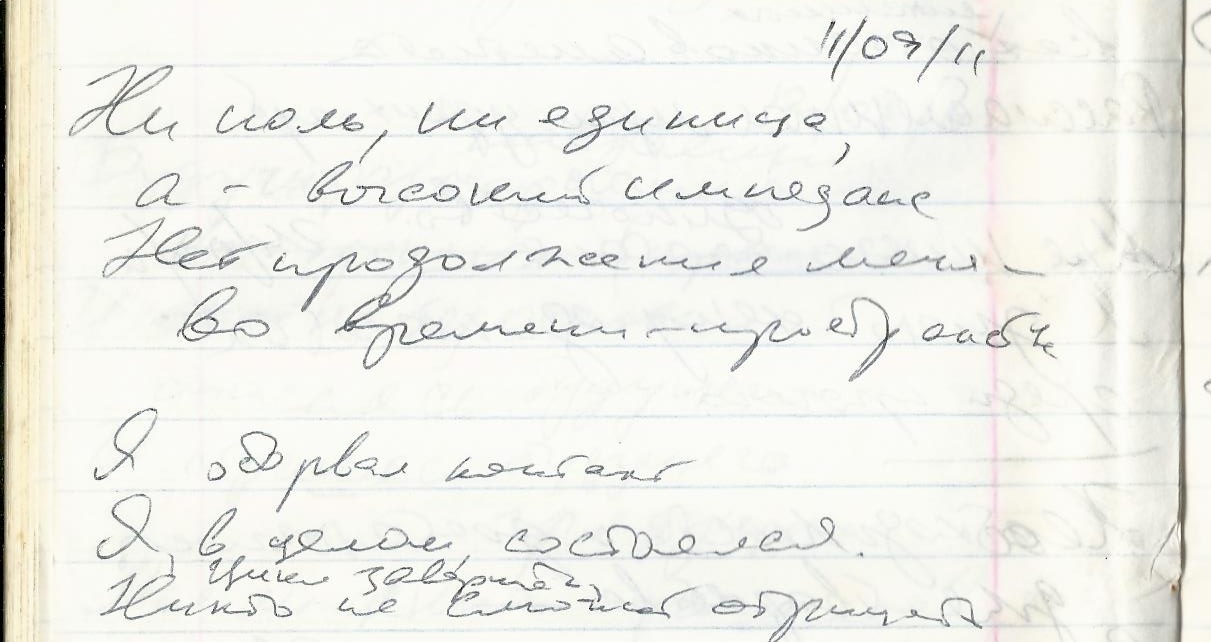 11/09/11
Ни ноль, ни единица,
а - высокий импеданс
Нет продолжение меня -
Во времени-пространстве
Я оборвал контакт
Я, в целом, состоялся.
Цикл завершён,
Никто не сможет отрицать